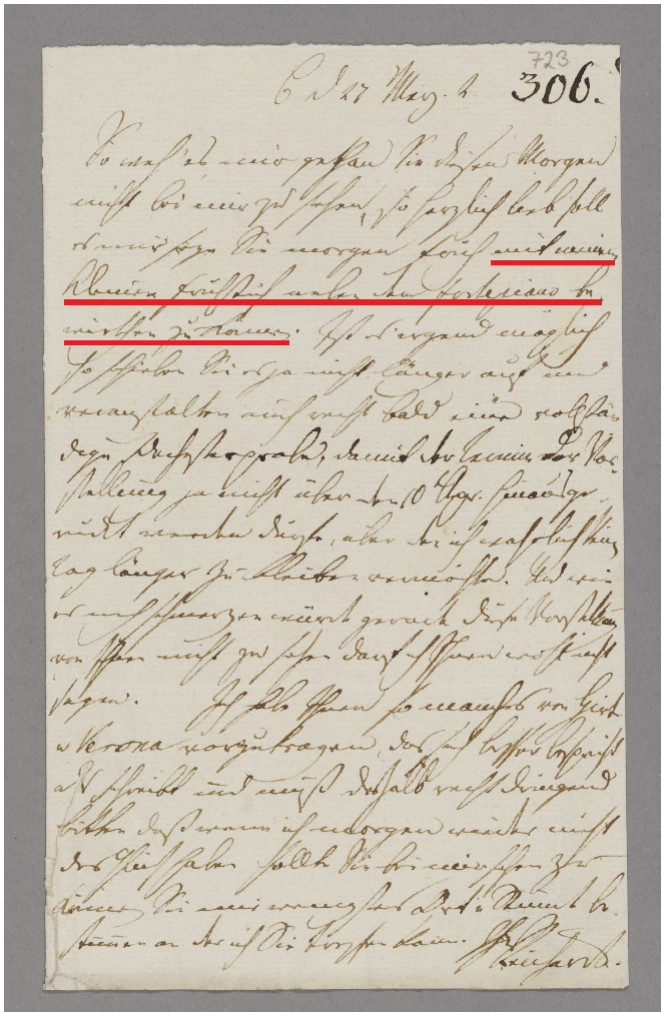 723
306.
B d 27 März. 2
So weh' es mir gethan Sie diesen Morgen
nicht bei mir zu sehen, so herzlich lieb soll
es mir seyn Sie morgen früh mit einem
kleinen Frühstück neben dem Fortepiano be
wirthen zu können. Ist es irgend möglich
so schieben Sie es ja nicht länger auf und
veranstalten auch recht bald eine vollstän-
dige Orchesterprobe, damit der Termin der Vor-
stellung ja nicht über den 10 Apr. hinausge-
rückt werden dürfte, über den ich wahrlich keinen
Tag länger zu bleiben vermöchte. Und wie
es mich schmerzen würde gerade diese Vorstellung
von Ihnen nicht zu sehen darf ich Ihnen wohl nicht
sagen. Ich habe Ihnen so manches von Hirt
u Verona vorzutragen, das sich besser bespricht
als schreibt und muß deshalb recht dringend
bitten daß wenn ich morgen wieder nicht
das Glück haben sollte Sie bei mir sehen zu
können, Sie mir wenigstens Ort u Stunde be-
stimmen an der ich Sie treffen kann.
Reichardt.